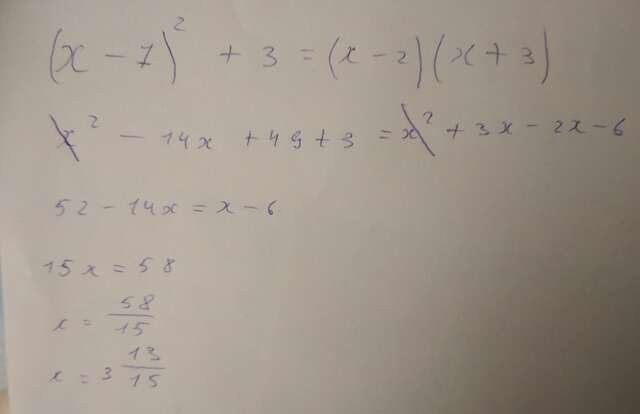 (x - 7)² + 3 = (x - 2)(x + 3)
x² - 14x + 49 + 3 = x² + 3x - 2x - 6
52 - 14x = x - 6
15x = 58
x = 58/15
x = 3 13/15